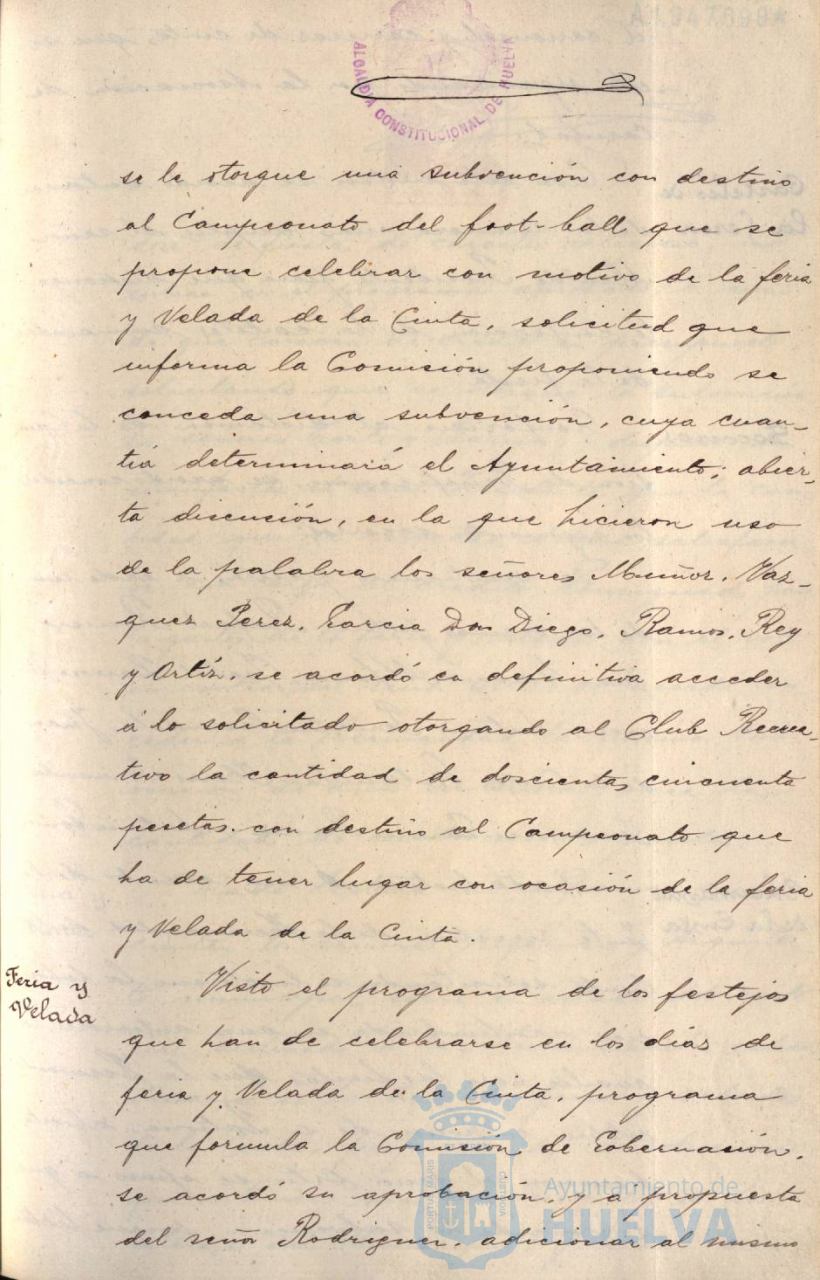 A1.947.699*
ALCALDÍA CONSTITUCIONAL DE HUELVA
se le otorgue una subvención con destino
al Campeonato del foot-ball que se
propone celebrar con motivo de la feria
y Velada de la Cinta, solicitud que
informa la Comisión proponiendo se
conceda una subvención, cuya cuan-
tia determinará el Ayuntamiento; abier-
ta discusión, en la que hicieron uso
de la palabra los señores Muñoz, Vaz-
quez Perez, Garcia Don Diego, Ramos, Rey
y Ortiz, se acordó en definitiva acceder
á lo solicitado otorgando al Club Recrea-
tivo la cantidad de doscientas cincuenta
pesetas con destino al Campeonato que
ha de tener lugar con ocasión de la feria
y Velada de la Cinta.
Feria y
Velada
Visto el programa de los festejos
que han de celebrarse en los días de
feria y Velada de la Cinta, programa
que formula la Comisión de Gobernación,
se acordó su aprobación, y a propuesta
del señor Rodriguez, adicionar al mismo
PORTUS MARIS
Ayuntamiento de
HUELVA